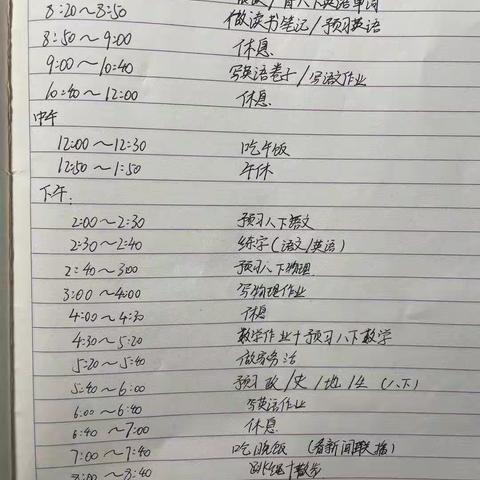 8:20～8:50 做读书笔记/预习英语
8:50～9:00 休息
9:00～10:40 写英语卷子/写语文作业
10:40～12:00 休息
中午
12:00～12:30 吃午饭
12:50～1:50 午休
下午:
2:00～2:30 预习八下语文
2:30～2:40 练字(语文/英语)
2:40～3:00 预习八下物理
3:00～4:00 写物理作业
4:00～4:30 休息
4:30～5:20 数学作业+预习八下数学
5:20～5:40 做家务活
5:40～6:00 预习政/史/地/生(八下)
6:00～6:40 写英语作业
6:40～7:00 休息
7:00～7:40 吃晚饭(看新闻联播)
8:00～8:40 跳绳+散步